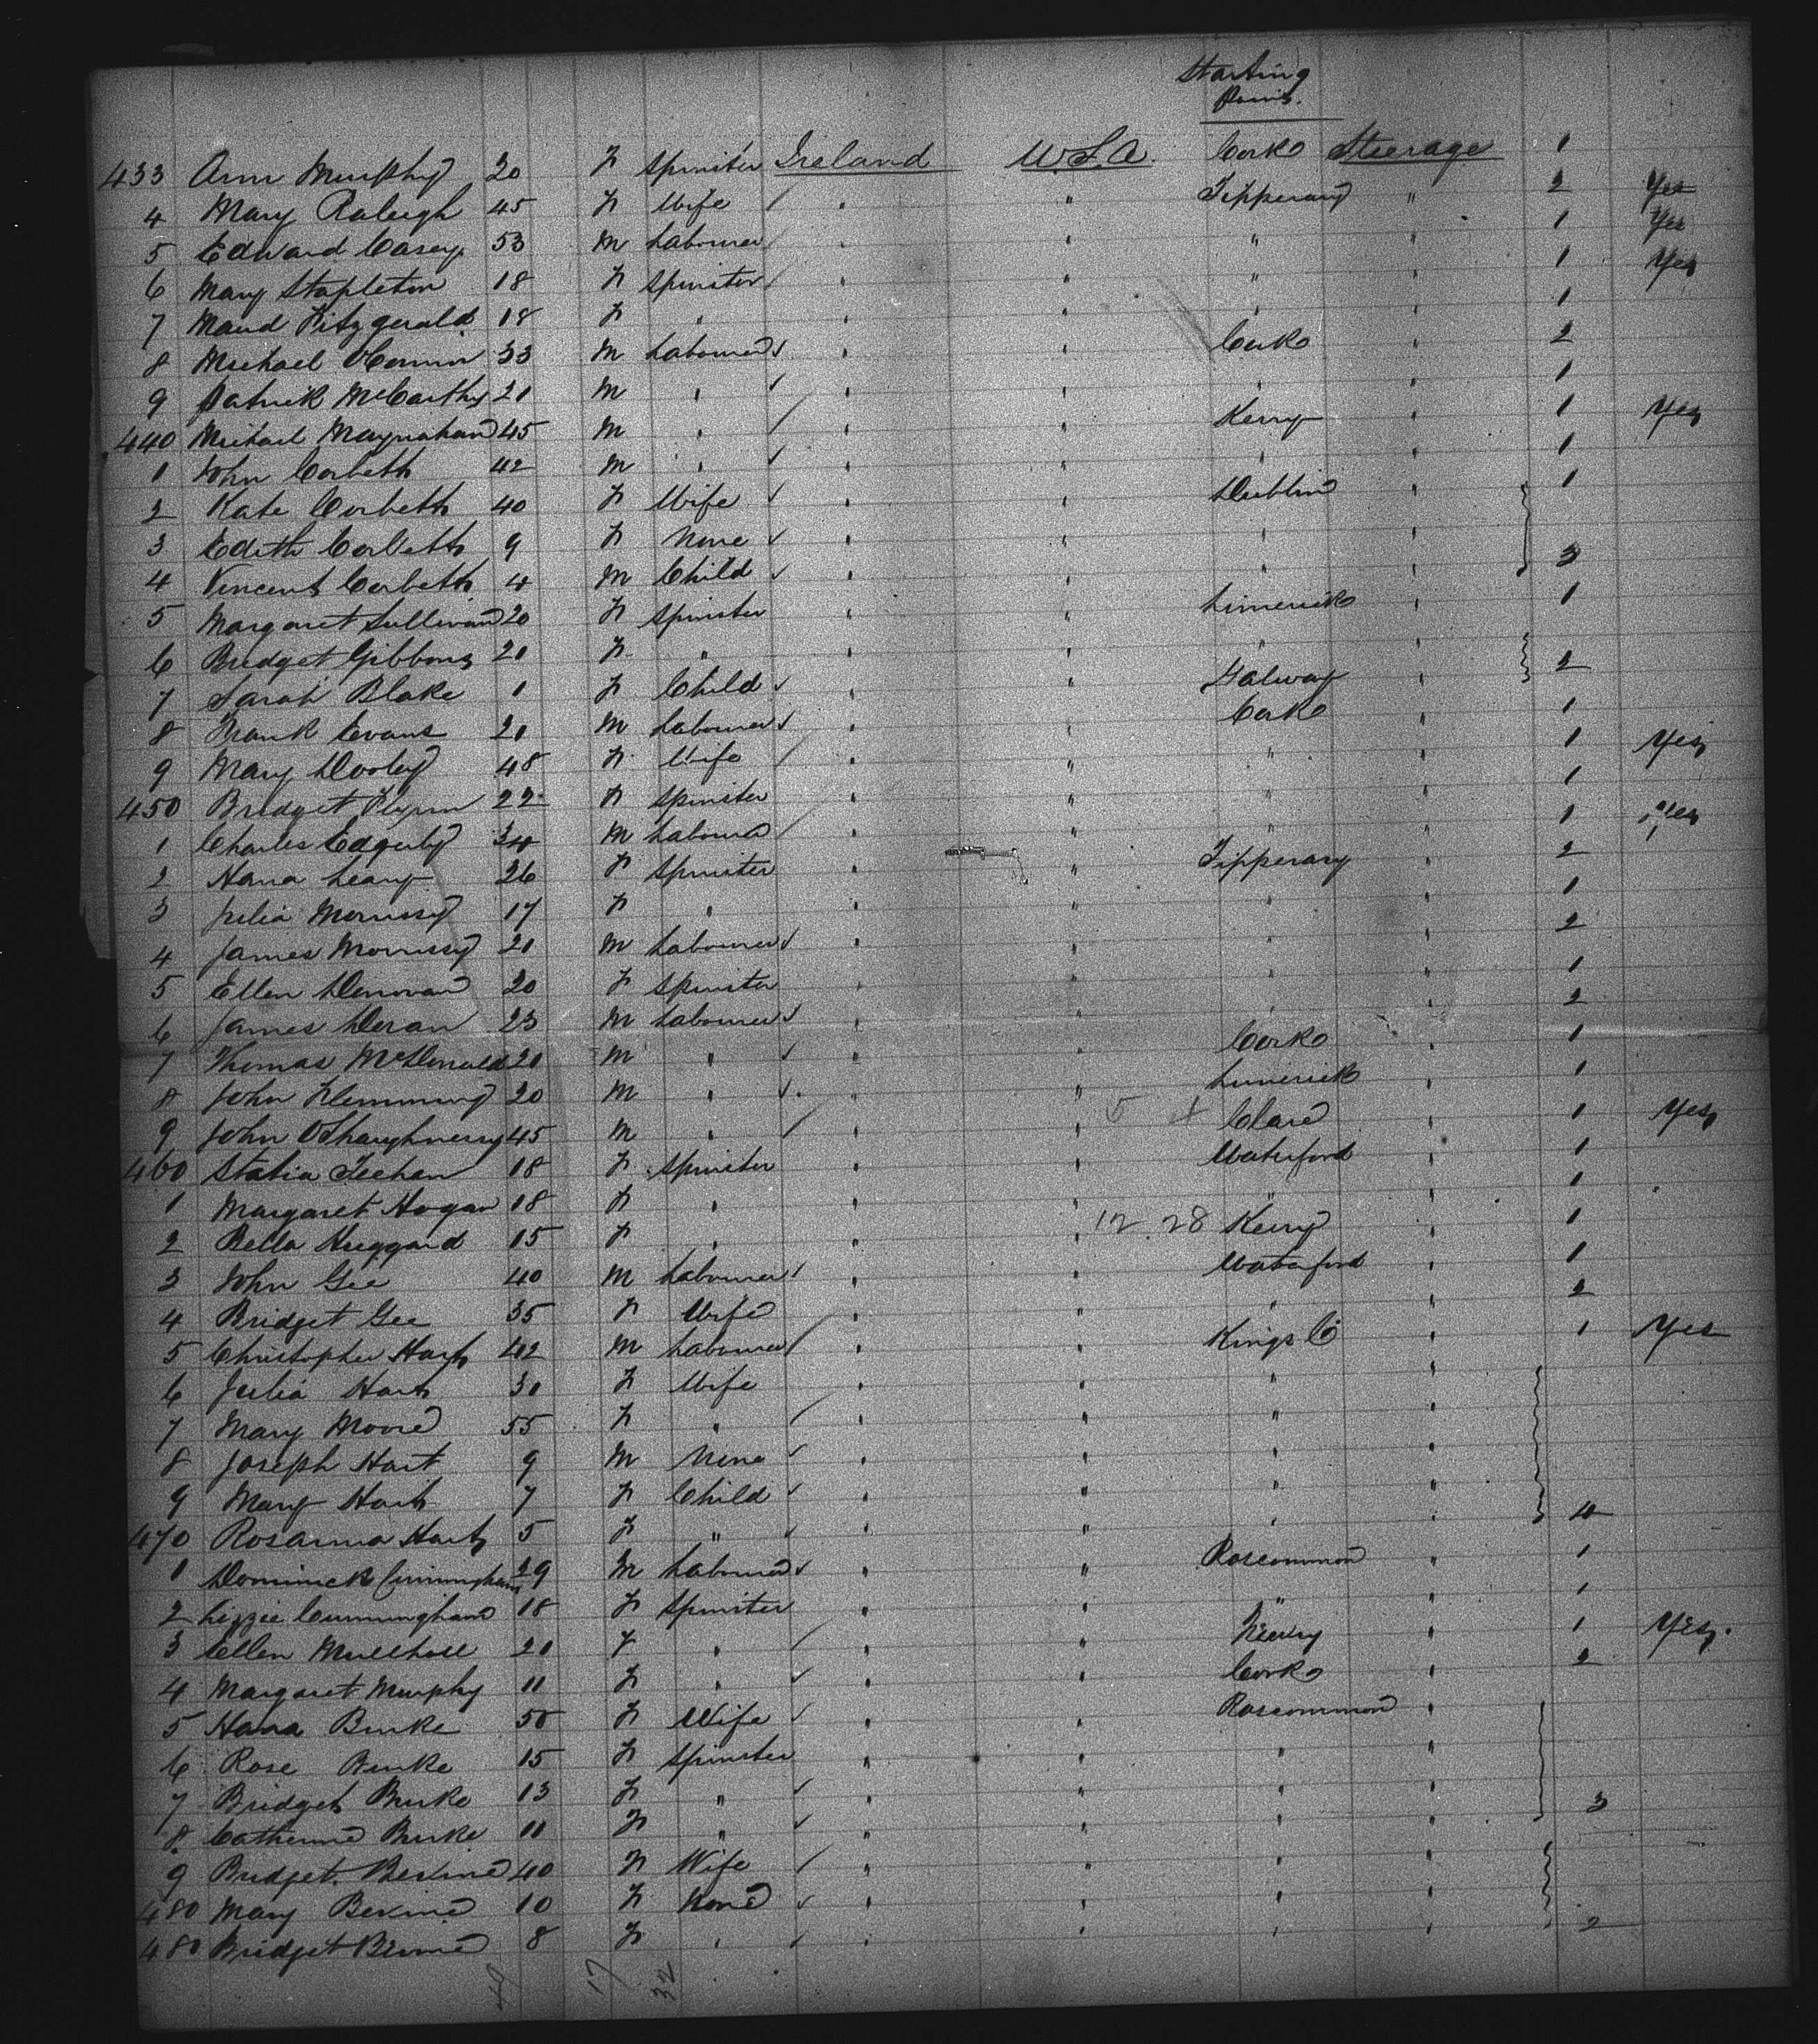 Starting
Point.
433 Ann Murphy 20 F Spinster Ireland U.S.A. Cork Steerage 1
4 Mary Raleigh 45 F Wife / " " Tipperary " 2 Yes
5 Edward Casey 53 M Labourer / " " " " 1 Yes
6 Mary Stapleton 18 F Spinster / " " " " 1 Yes
7 Maud Fitzgerald 18 F " " " " " 1
8 Michael O'Connor 33 M Labourer ✓ " " Cork " 2
9 Patrick McCarthy 21 M " ✓ " " " " 1
440 Michael Maynahan 45 M " / " " Kerry " 1 Yes
1 John Corbett 42 M " ✓ " " " " 1
2 Kate Corbett 40 F Wife ✓ " " Dublin " 1
3 Edith Corbett 9 F None ✓ " " " "
4 Vincent Corbett 4 M Child ✓ " " " " 3
5 Margaret Sullivan 20 F Spinster " " Limerick " 1
6 Bridget Gibbons 21 F " " " " "
7 Sarah Blake 1 F Child ✓ " " Galway 2
8 Frank Evans 21 M Labourer ✓ " " Cork 1
9 Mary Dooley 48 F Wife / " " " 1 Yes
450 Bridget Flynn 22 F Spinster " " " 1
1 Charles Edgerly 34 M Labourer / " " " " 1 Yes
2 Hana Leary 26 F Spinster " " Tipperary " 2
3 Julia Morrissy 17 F " " " " " 1
4 James Morrissy 21 M Labourer ✓ " " " " 2
5 Ellen Donovan 20 F Spinster " " " " 1
6 James Doran 23 M Labourer ✓ " " " " 2
7 Thomas McDonald 20 M " ✓ " " Cork " 1
8 John Flemming 20 M " ✓ " " Limerick " 1
9 John O'Shaughnessy 45 M " / " " Clare " 1 Yes
460 Statia Feehan 18 F Spinster " " Waterford " 1
1 Margaret Hogan 18 F " " " " " 1
2 Bella Huggard 15 F " " " 12.28 Kerry " 1
3 John Gee 40 M Labourer ✓ " " Waterford " 1
4 Bridget Gee 35 F Wife " " " " 2
5 Christopher Hart 42 M Labourer / " " Kings Co " 1 Yes
6 Julia Hart 30 F Wife " " " "
7 Mary Moore 55 F " / " " " "
8 Joseph Hart 9 M None ✓ " " " "
9 Mary Hart 7 F Child ✓ " " " "
470 Rosanna Hart 5 F " ✓ " " " " 4
1 Dominick Cunningham 29 M Labourer ✓ " " Roscommon " 1
2 Lizzie Cunningham 18 F Spinster " " " " 1
3 Ellen Mulhall 21 F " / " " Newry " 1 Yes.
4 Margaret Murphy 11 F " ✓ " " Cork " 2
5 Hana Burke 50 F Wife ✓ " " Roscommon "
6 Rose Burke 15 F Spinster " " " "
7 Bridget Burke 13 F " ✓ " " " "
8 Catherine Burke 11 F " ✓ " " " " 3
9 Bridget Beirne 40 F Wife / " " " "
480 Mary Beirne 10 F None ✓ " " " "
480 Bridget Beirne 8 F " ✓ " " " " 2
17 32